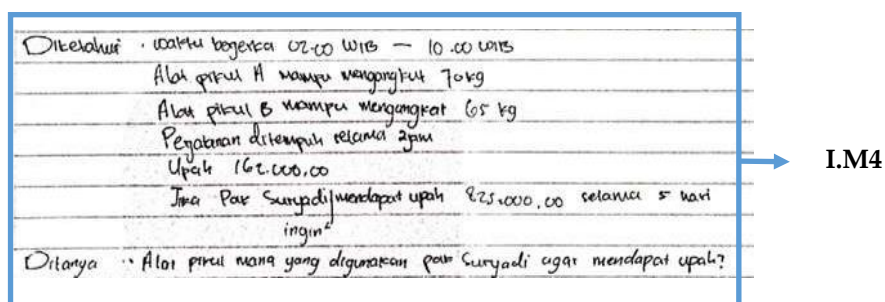 Diketahui : waktu bekerja 02.00 WIB — 10.00 WIB
Alat pikul A mampu mengangkut 70 kg
Alat pikul B mampu mengangkat 65 kg
Perjalanan ditempuh selama 2 jam
Upah 162.000,00
Jika Pak Suryadi ingin mendapat upah 825.000,00 selama 5 hari
Ditanya : Alat pikul mana yang digunakan pak Suryadi agar mendapat upah?
I.M4